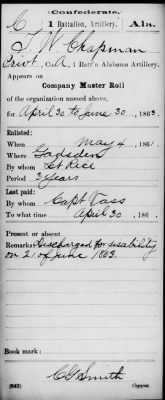 (Confederate.)
C 1 Battalion, Artillery, Ala.
J. W. Chapman
Privt, Co. A, 1 Batt'n Alabama Artillery.
Appears on
Company Muster Roll
of the organization named above,
for April 30 to June 30, 1863.
Enlisted:
When May 4, 1861.
Where Gadsden
By whom Lt Rice
Period 3 Years
Last paid:
By whom Capt Vass
To what time April 30, 186 .
Present or absent
Remarks: Discharged for disability
on 21 of June 1863.
Book mark:
C G Smith
(642) Copyist.